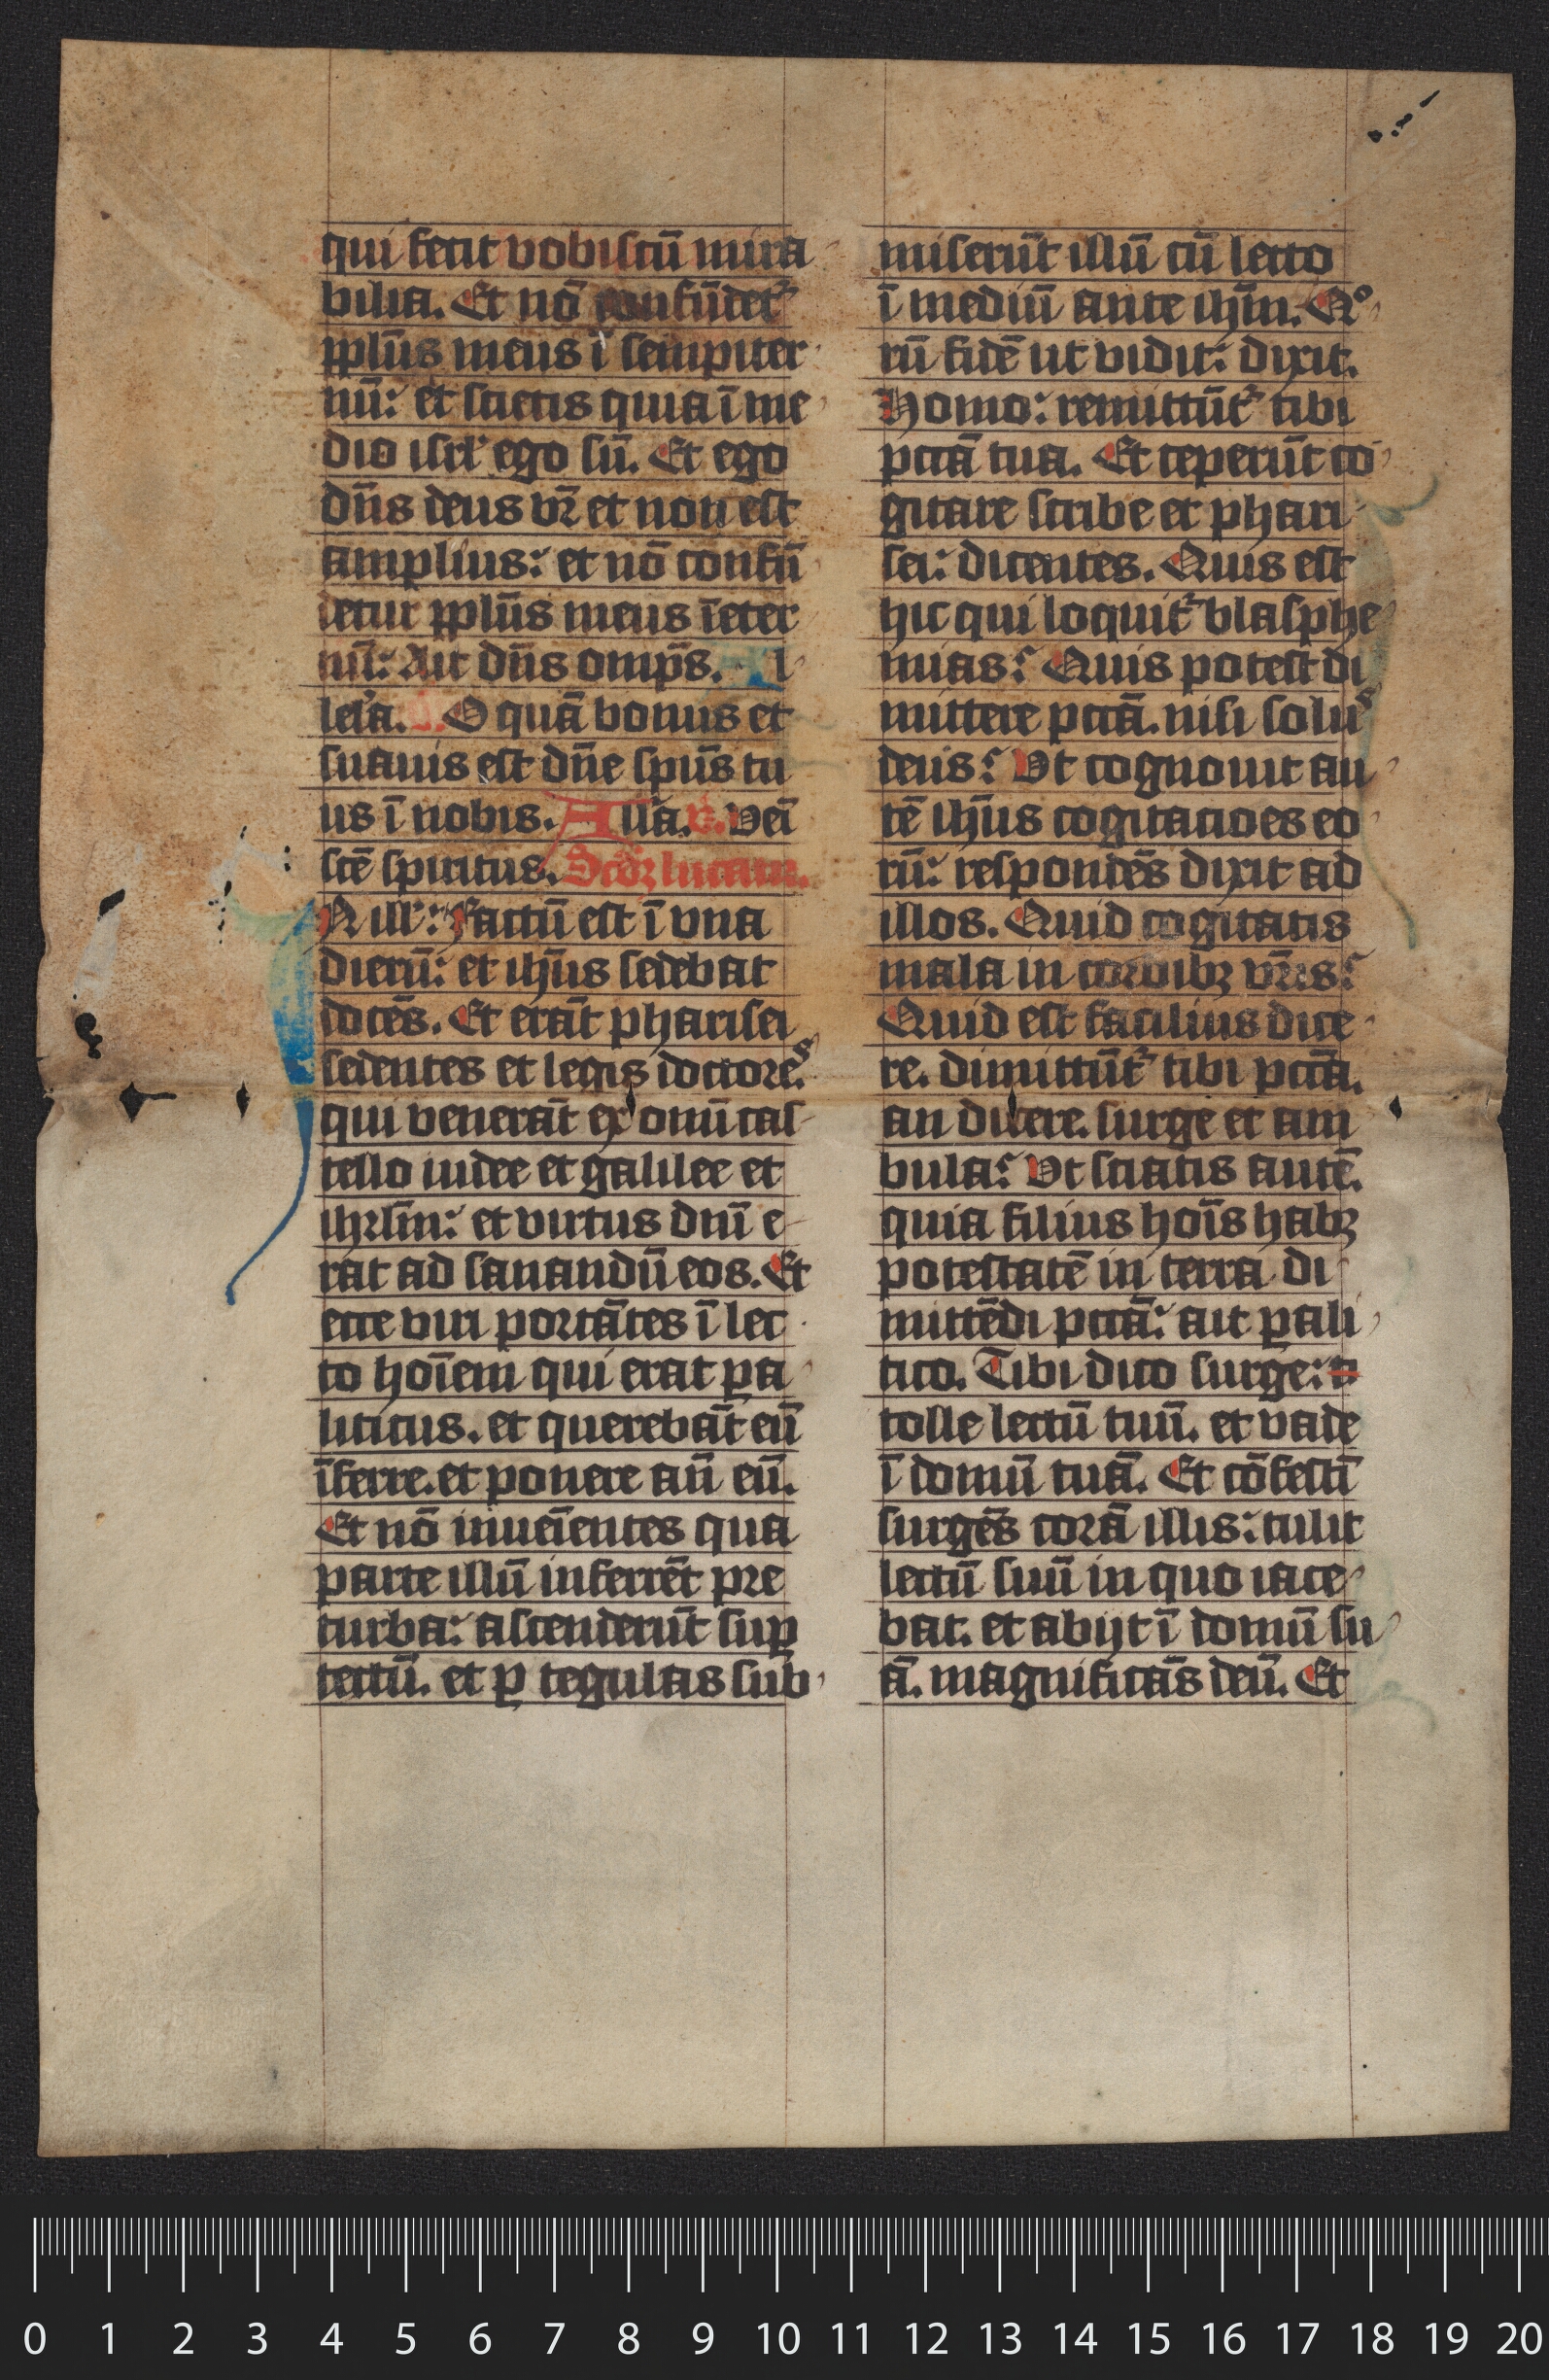 qui fecit vobiscū mira
bilia. Et nō confūdet᷑
pplūs meus ī sempiter
nū: et scietis quia ī me
dio isrl' ego sū. Et ego
dn̄s deus vr̄ et non est
amplius: et nō confū
detur pplūs meus īeter
nū: Ait dn̄s omp̄s. Al
lela. v. O quā bonus et
suauis est dn̄e spūs tu
us ī nobis. All'a. v. Veī
scē spiritus. Scd'ꝫ lucam.
N ill': Factū est ī vna
dierū: et ih̄us sedebat
docēs. Et erāt pharisei
sedentes et legis doctores
qui venerāt ex omī cas
tello iudee et galilee et
ihrlm̄: et virtus dnī e
rat ad sanandū eos. Et
ecce viri portātes ī lec
to hoīem qui erat ꝑa
liticus. et querebāt eū
īferre. et ponere an̄ eū.
Et nō inueīentes qua
parte illū inferrēt pre
turba: ascenderūt suꝑ
tectū. et ꝑ tegulas sub
miserūt illū cū lecto
ī mediū ante ih̄m. Qo
rū fidē ut vidit: dixit.
Homo: remittūt᷑ tibi
pctā tua. Et ceperūt co
gitare scribe et phari
sei: dicentes. Quis est
hic qui loquit᷑ blasphe
mias? Quis potest di
mittere pctā. nisi solus
deus? Vt cognouit au
tē ih̄us cogitacioes eo
rū: respondēs dixit ad
illos. Quid cogitatis
mala in cordibꝫ vr̄is?
Quid est facilius dice
re. dimittūt᷑ tibi pctā.
an dicere. surge et am
bula? Vt sciatis autē.
quia filius hoīs habꝫ
potestatē in terra di
mittēdi pctā: ait ꝑali
tico. Tibi dico surge: t
tolle lectū tuū. et vade
ī domū tuā. Et cōfestī
surgēs corā illis: tulit
lectū suū in quo iace
bat. et abijt ī domū su
ā. magnificās deū. Et
0 1 2 3 4 5 6 7 8 9 10 11 12 13 14 15 16 17 18 19 20